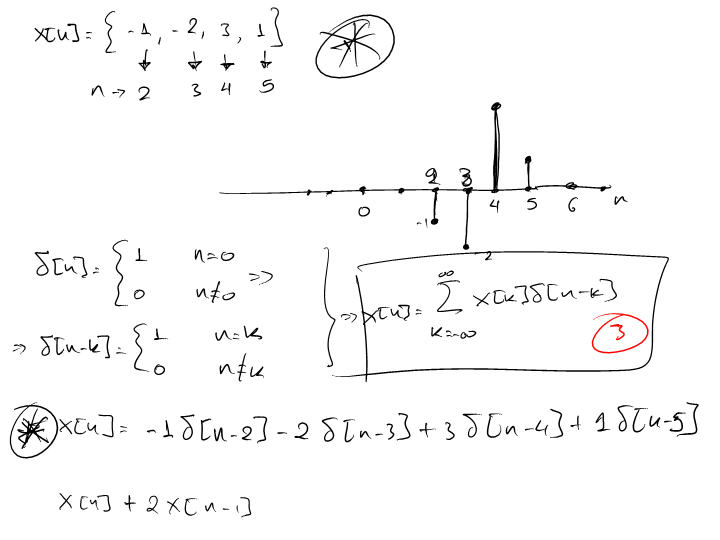 x[n] = { -1, -2, 3, 1 }
n → 2 3 4 5
2 3
0 4 5 6 n
-1
-2
δ[n] = { 1 n=0
0 n≠0 ⇒
⇒ δ[n-k] = { 1 n=k
0 n≠k
⇒ x[n] = ∑ x[k]δ[n-k]
∞
k=-∞
3
x[n] = -1 δ[n-2] - 2 δ[n-3] + 3 δ[n-4] + 1 δ[n-5]
x[n] + 2 x[n-1]